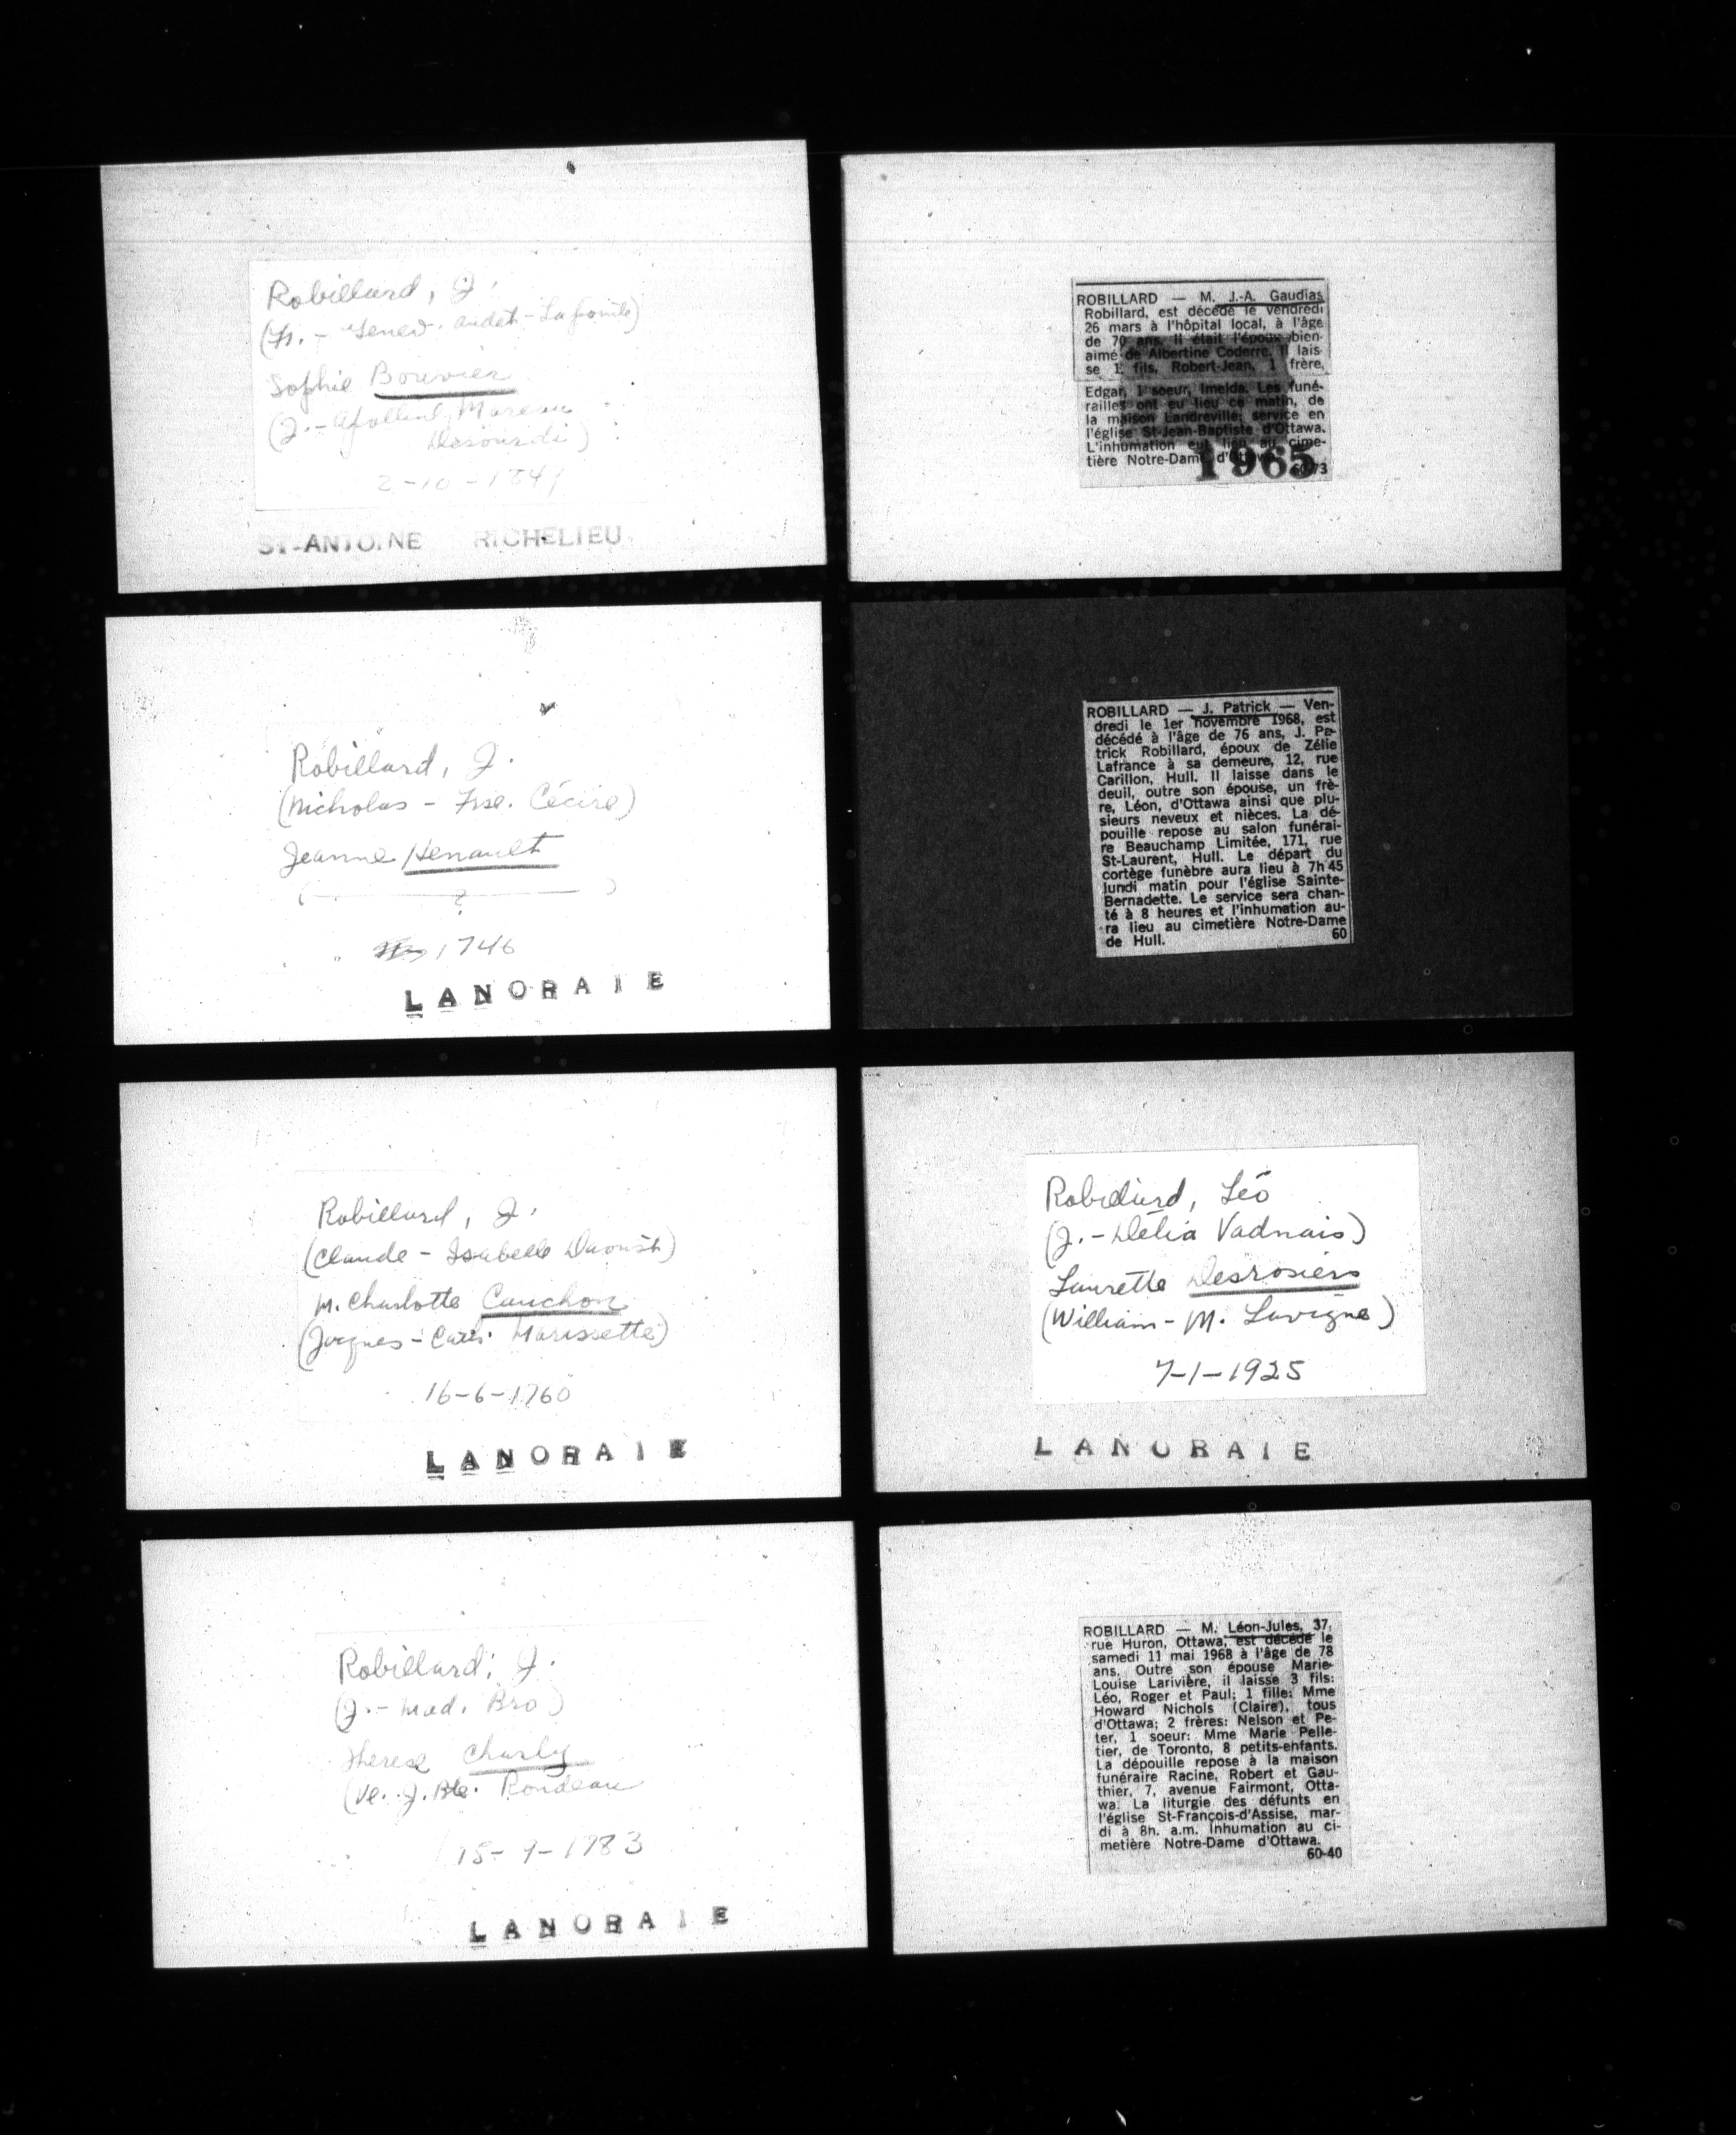 Robillard, J.
(Fr. - Genev. Audet-Lapointe)
Sophie Bouvier
(J. - Apolline Moreau
Desourdi)
2-10-184
ST-ANTOINE RICHELIEU
Robillard, J.
(Nicholas - Fse. Cécire)
Jeanne Henault
( ? )
1746
LANORAIE
Robillard, J.
(Claude - Isabelle Daoust)
M. Charlotte Cauchon
(Jacques - Cath. Marissette)
16-6-1760
LANORAIE
Robillard, J.
(J. - Mad. Bro)
Therese Charly
(Ve. J. Bte. Rondeau
15-9-1783
LANORAIE
ROBILLARD — M. J.-A. Gaudias
Robillard, est décédé le vendredi
26 mars à l'hôpital local, à l'âge
de 70 ans. Il était l'époux bien-
aimé de Albertine Coderre. Il lais
se 1 fils, Robert-Jean, 1 frère,
Edgar, 1 soeur, Imelda. Les funé-
railles ont eu lieu ce matin, de
la maison Landreville; service en
l'église St-Jean-Baptiste d'Ottawa.
L'inhumation eut lieu au cime-
tière Notre-Dame
1965
ROBILLARD — J. Patrick — Ven-
dredi le 1er novembre 1968, est
décédé à l'âge de 76 ans, J. Pa-
trick Robillard, époux de Zélie
Lafrance à sa demeure, 12, rue
Carillon, Hull. Il laisse dans le
deuil, outre son épouse, un frè-
re, Léon, d'Ottawa ainsi que plu-
sieurs neveux et nièces. La dé-
pouille repose au salon funérai-
re Beauchamp Limitée, 171, rue
St-Laurent, Hull. Le départ du
cortège funèbre aura lieu à 7h 45
lundi matin pour l'église Sainte-
Bernadette. Le service sera chan-
té à 8 heures et l'inhumation au-
ra lieu au cimetière Notre-Dame
de Hull. 60
Robillard, Léo
(J. - Délia Vadnais)
Laurette Desrosiers
(William - M. Lavigne)
7-1-1925
LANORAIE
ROBILLARD — M. Léon-Jules, 37,
rue Huron, Ottawa, est décédé le
samedi 11 mai 1968 à l'âge de 78
ans. Outre son épouse Marie-
Louise Larivière, il laisse 3 fils:
Léo, Roger et Paul; 1 fille: Mme
Howard Nichols (Claire), tous
d'Ottawa; 2 frères: Nelson et Pe-
ter, 1 soeur: Mme Marie Pelle-
tier, de Toronto, 8 petits-enfants.
La dépouille repose à la maison
funéraire Racine, Robert et Gau-
thier, 7, avenue Fairmont, Otta-
wa. La liturgie des défunts en
l'église St-François-d'Assise, mar-
di à 8h. a.m. Inhumation au ci-
metière Notre-Dame d'Ottawa.
60-40